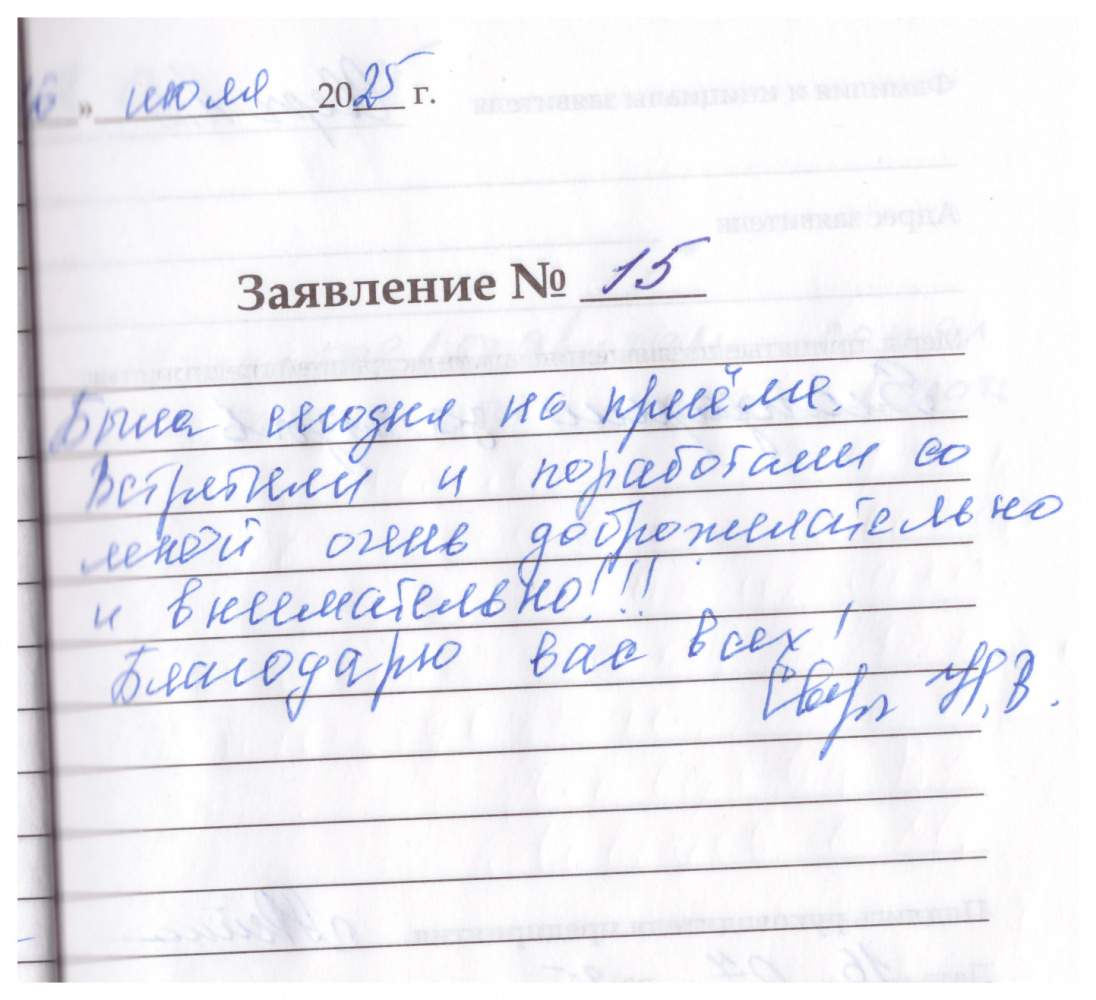 6 » июля 2025 г.
Заявление № 15
Была сегодня на приёме.
Встретили и поработали со
мной очень доброжелательно
и внимательно!!!
Благодарю вас всех!
Н.В.